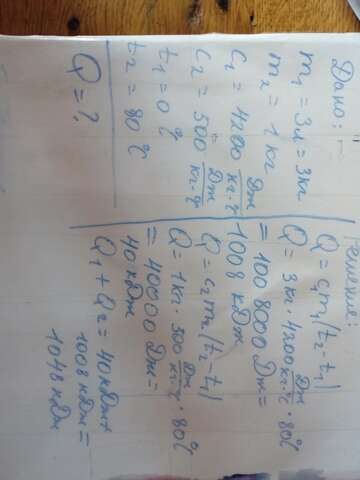 Дано:
m₁ = 3л = 3кг
m₂ = 1 кг
c₁ = 4200 Дж/кг·°C
c₂ = 500 Дж/кг·°C
t₁ = 0 °C
t₂ = 80 °C
Q = ?
Решение:
Q = c₁m₁(t₂-t₁)
Q = 3кг·4200 Дж/кг·°C · 80°C
= 1008000 Дж =
1008 кДж
Q = c₂m₂(t₂-t₁)
Q = 1кг·500 Дж/кг·°C · 80°C
= 40000 Дж =
40 кДж
Q₁ + Q₂ = 40кДж+
1008кДж =
1048кДж